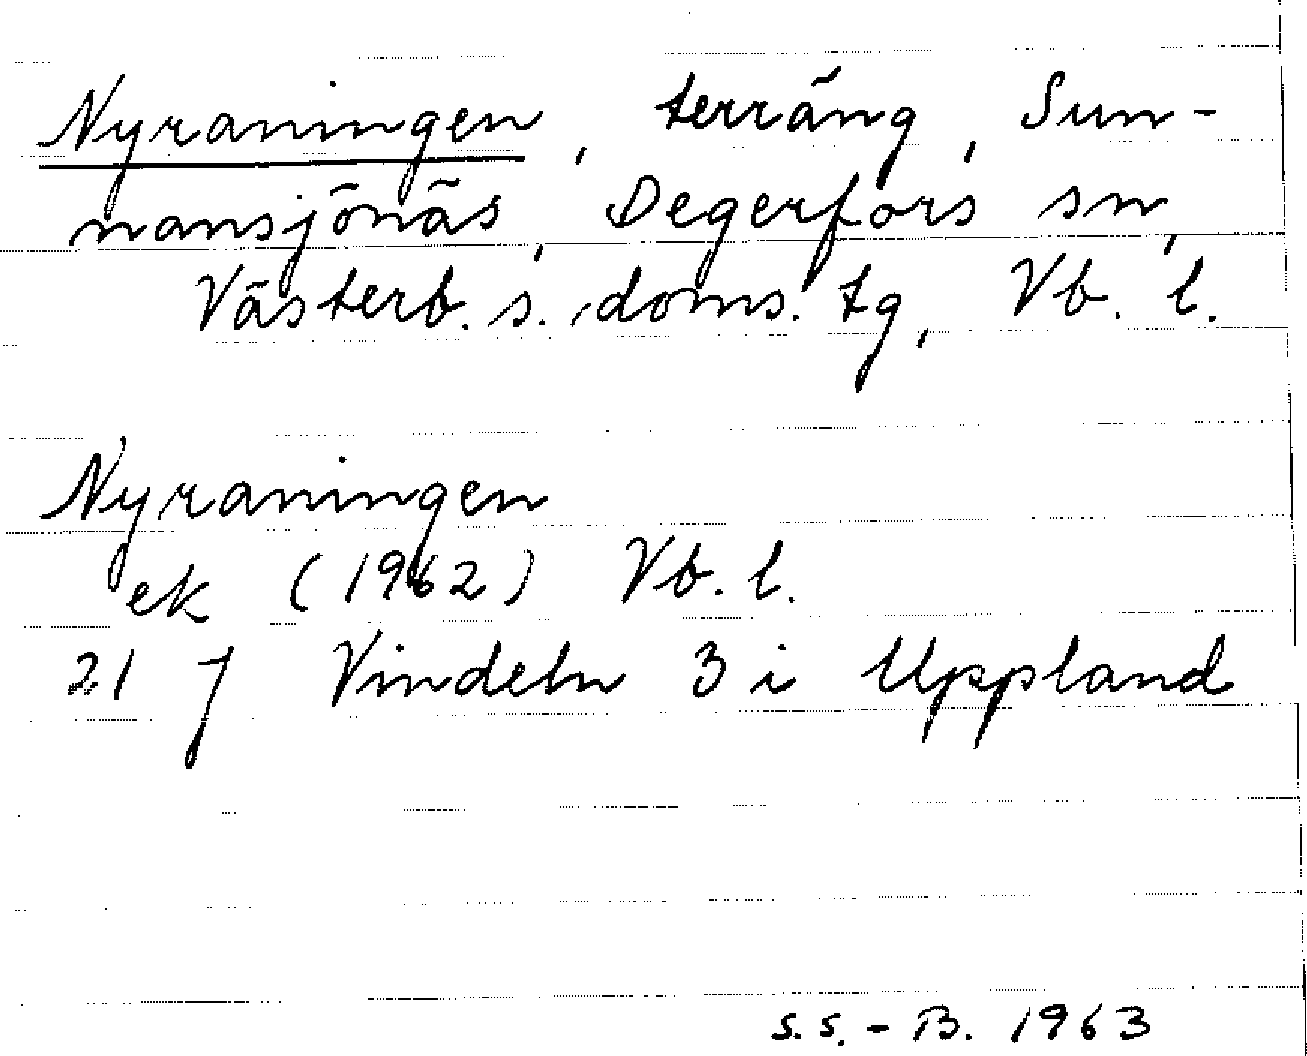 Nyraningen, terräng, Sun-
nansjönäs, Degerfors sn,
Västerb. s. doms. tg, Vb. l.
Nyraningen
ek (1962) Vb. l.
21 J Vindeln 3 i Uppland
S.S. - B. 1963